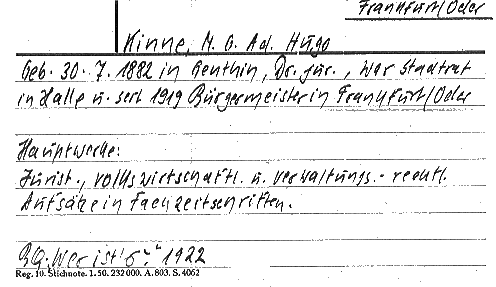 Frankfurt/Oder
Kinne, M. G. Ad. Hugo
Geb. 30. 7. 1882 in Genthin, Dr. jur., war Stadtrat
in Halle u. seit 1919 Bürgermeister in Frankfurt/Oder
Hauptwerke:
Jurist., volkswirtschaftl. u. verwaltungs.-rechtl.
Aufsätze in Fachzeitschriften.
Wer ist's?" 1922
Reg. 10. Stichnote. 1. 50. 232 000. A. 803. S. 4062